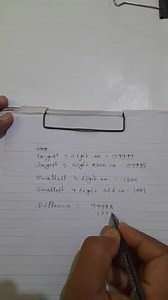 Largest 5 digit no = 99999
Largest 5 digit even no = 99998
Smallest 4 digit no = 1000
Smallest 4 digit odd no = 1001
Difference = 99998